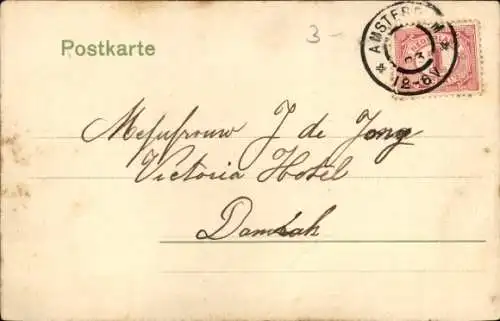 3-
AMSTERDAM
Postkarte
12-6V
Mejufrouw J de Jong
Victoria Hotel
Damrak